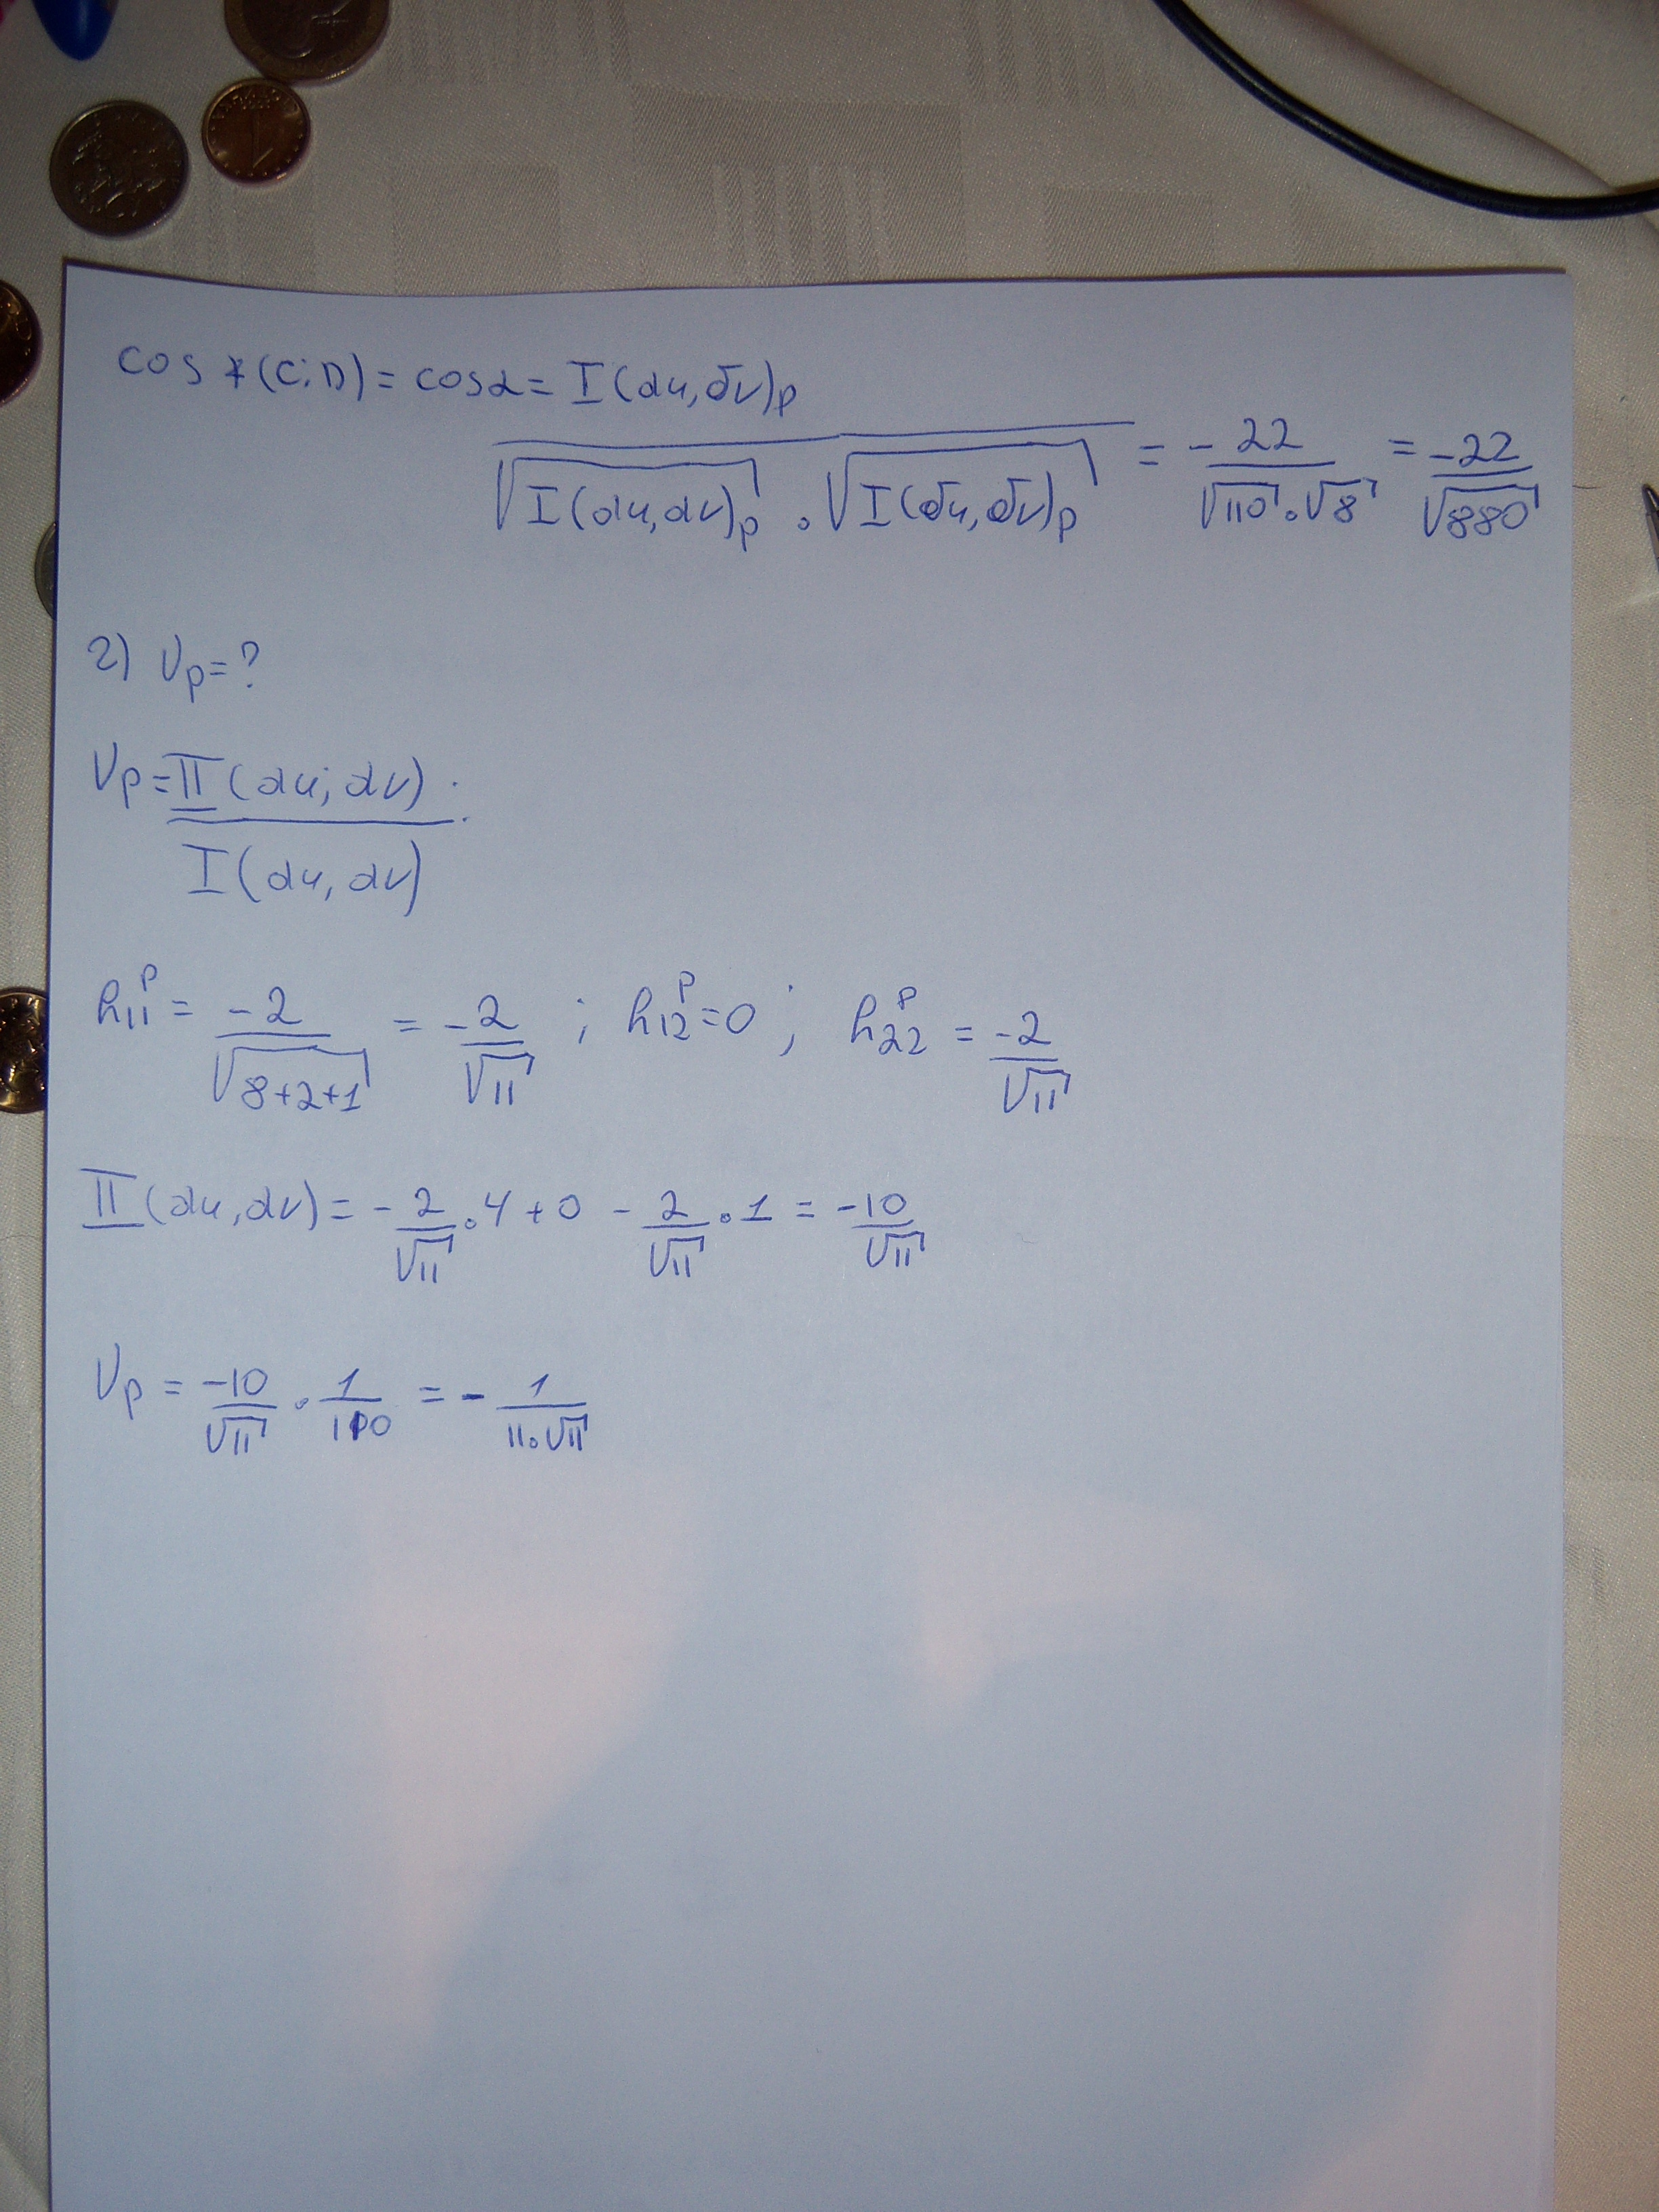 1
cos ∢(C;D) = cosα = I(du,δv)p / (√I(du,dv)p . √I(δu,δv)p) = -22/(√110.√8) = -22/√880
2) νp=?
νp = II(du;dv) / I(du,dv)
h₁₁ᵖ = -2/√(8+2+1) = -2/√11 ; h₁₂ᵖ=0 ; h₂₂ᵖ = -2/√11
II(du,dv) = -2/√11 . 4 + 0 - 2/√11 . 1 = -10/√11
νp = -10/√11 . 1/110 = - 1/(11.√11)